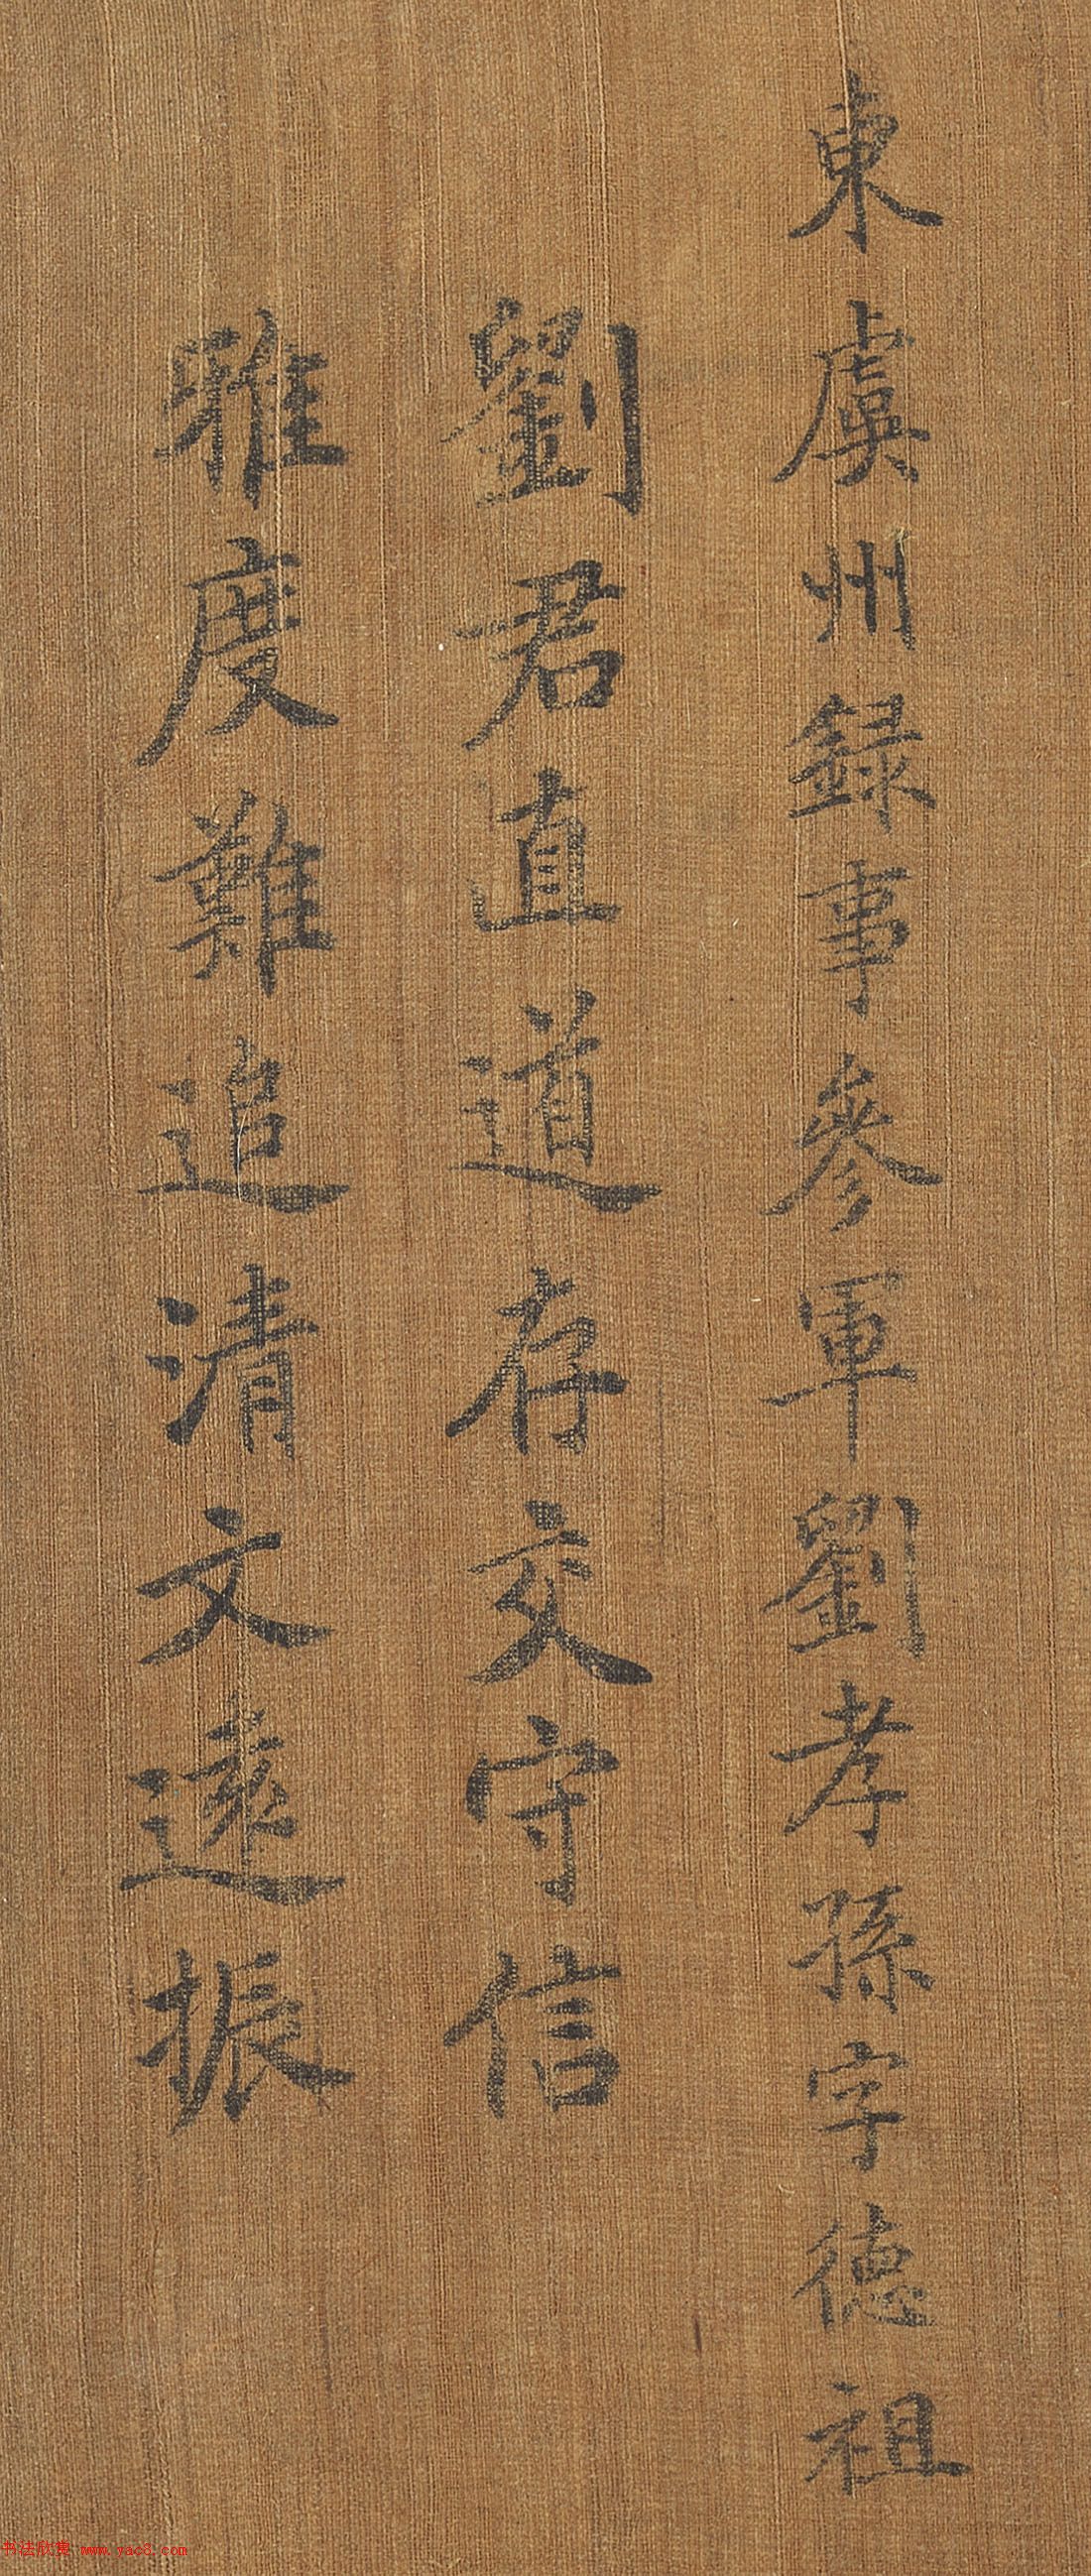 東虞州録事參軍劉孝孫字德祖
劉君直道存交守信
雅度難追清文遠振
书法欣赏 www.yac8.com